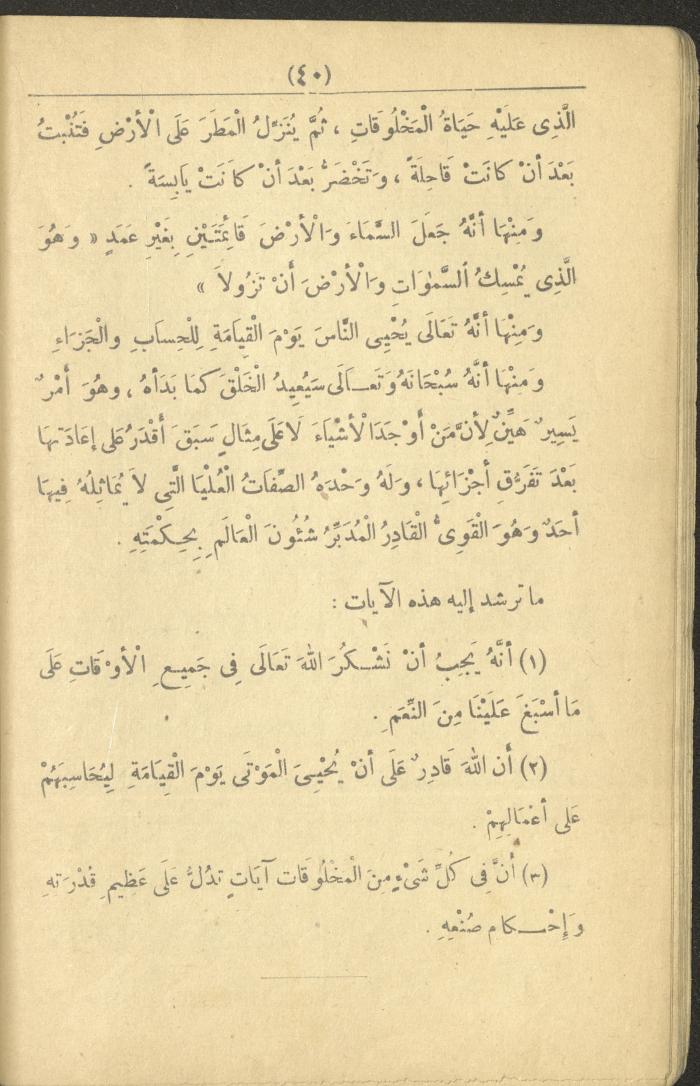 (٤٠)
الَّذِى عَلَيْهِ حَيَاةُ الْمَخْلُوقَاتِ ، ثُمَّ يُنَزِّلُ الْمَطَرَ عَلَى الْأَرْضِ فَتُنْبِتُ
بَعْدَ أَنْ كَانَتْ قَاحِلَةً ، وَتَخْضَرُّ بَعْدَ أَنْ كَانَتْ يَابِسَةً .
وَمِنْهَا أَنَّهُ جَعَلَ السَّمَاءَ وَالْأَرْضَ قَائِمَتَيْنِ بِغَيْرِ عَمَدٍ « وَهُوَ
الَّذِى يُمْسِكُ السَّمٰوَاتِ وَالْأَرْضَ أَنْ تَزُولاَ »
وَمِنْهَا أَنَّهُ تَعَالَى يُحْيِى النَّاسَ يَوْمَ الْقِيَامَةِ لِلْحِسَابِ وَالْجَزَاءِ
وَمِنْهَا أَنَّهُ سُبْحَانَهُ وَتَعَالَى سَيُعِيدُ الْخَلْقَ كَمَا بَدَأَهُ ، وَهُوَ أَمْرٌ
يَسِيرٌ هَيِّنٌ لِأَنَّ مَنْ أَوْجَدَ الْأَشْيَاءَ لَا عَلَى مِثَالٍ سَبَقَ أَقْدَرُ عَلَى إِعَادَتِهَا
بَعْدَ تَفَرُّقِ أَجْزَائِهَا ، وَلَهُ وَحْدَهُ الصِّفَاتُ الْعُلْيَا الَّتِى لاَ يُمَاثِلُهُ فِيهَا
أَحَدٌ وَهُوَ الْقَوِىُّ الْقَادِرُ الْمُدَبِّرُ شُئُونَ الْعَالَمِ بِحِكْمَتِهِ .
ما ترشد إليه هذه الآيات :
(١) أَنَّهُ يَجِبُ أَنْ نَشْكُرَ اللهَ تَعَالَى فِى جَمِيعِ الْأَوْقَاتِ عَلَى
مَا أَسْبَغَ عَلَيْنَا مِنَ النِّعَمِ .
(٢) أَن اللهَ قَادِرٌ عَلَى أَنْ يُحْيِىَ الْمَوْتَى يَوْمَ الْقِيَامَةِ لِيُحَاسِبَهُمْ
عَلَى أَعْمَالِهِمْ .
(٣) أَنَّ فِى كُلِّ شَىْءٍ مِنَ الْمَخْلُوقَاتِ آيَاتٍ تَدُلُّ عَلَى عَظِيمِ قُدْرَتِهِ
وَإِحْكَامِ صُنْعِهِ .